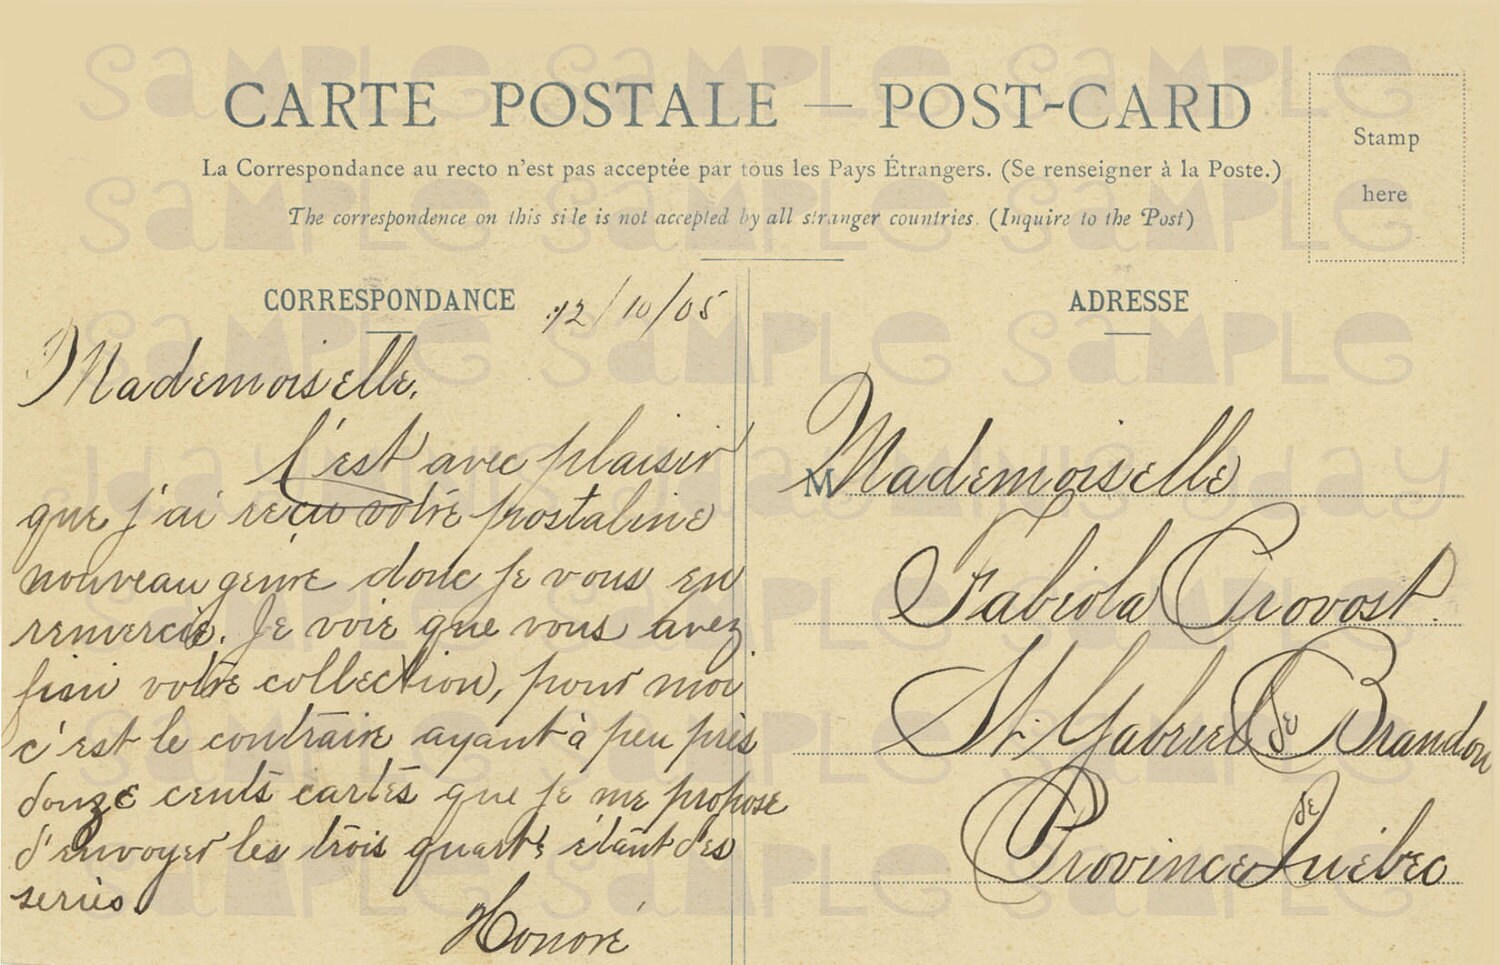 CARTE POSTALE — POST-CARD
La Correspondance au recto n'est pas acceptée par tous les Pays Étrangers. (Se renseigner à la Poste.)
The correspondence on this side is not accepted by all stranger countries. (Inquire to the Post)
Stamp
here
CORRESPONDANCE 12/10/05
Mademoiselle,
C'est avec plaisir
que j'ai reçu votre postaline
nouveau genre donc je vous en
remercie. Je voie que vous avez
fini votre collection, pour moi
c'est le contraire ayant à peu près
douze cents cartes que je me propose
d'envoyer les trois quarts étant des
series.
Honoré
ADRESSE
M Mademoiselle
Fabiola Provost.
St. Gabriel de Brandon
Province de Québec
SAMPLE SAMPLE SAMPLE
SAMPLE SAMPLE SAMPLE
SAMPLE SAMPLE SAMPLE
SAMPLE SAMPLE SAMPLE
SAMPLE SAMPLE SAMPLE